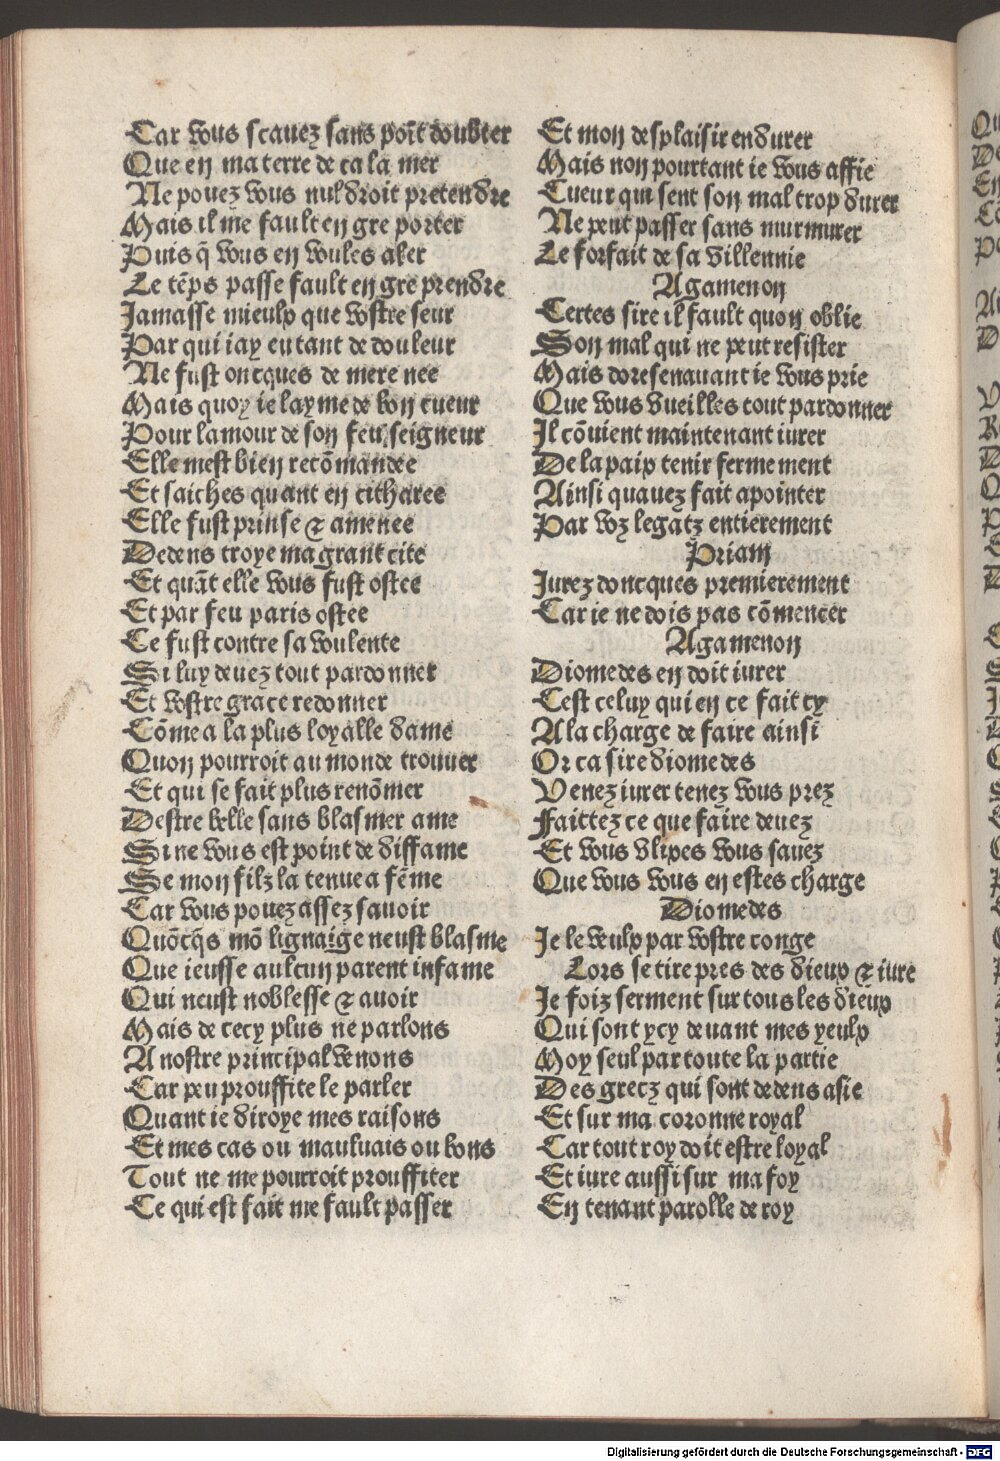 Car vous scauez sans poīt doubter
Que en ma terre de ca la mer
Ne pouez vous nul droit pretendre
Mais il me fault en gre porter
Puis q̄ vous en voules aler
Le tēps passe fault en gre prendre
Jamasse mieulx que vostre seur
Par qui iay eu tant de douleur
Ne fust oncques de mere nee
Mais quoy ie layme de bon cueur
Pour lamour de son feu seigneur
Elle mest bien recōmandee
Et saiches quant en citharee
Elle fust prinse & amenee
Dedens troye ma grant cite
Et quāt elle vous fust ostee
Et par feu paris ostee
Ce fust contre sa voulente
Si luy deuez tout pardonner
Et vostre grace redonner
Cōme a la plus loyalle dame
Quon pourroit au monde trouuer
Et qui se fait plus renōmer
Destre belle sans blasmer ame
Si ne vous est point de diffame
Se mon filz la tenue a fēme
Car vous pouez assez sauoir
Quōcq̄s mō lignaige neust blasme
Que ieusse aulcun parent infame
Qui neust noblesse & auoir
Mais de cecy plus ne parlons
A nostre principal venons
Car peu prouffite le parler
Quant ie diroye mes raisons
Et mes cas ou mauluais ou bons
Tout ne me pourroit prouffiter
Ce qui est fait me fault passer
Et mon desplaisir endurer
Mais non pourtant ie vous affie
Cueur qui sent son mal trop durer
Ne peut passer sans murmurer
Le forfait de sa villennie
Agamenon
Certes sire il fault quon oblie
Son mal qui ne peut resister
Mais doresenauant ie vous prie
Que vous vueilles tout pardonner
Il cōuient maintenant iurer
De la paix tenir fermement
Ainsi quauez fait apointer
Par voz legatz entierement
Priam
Jurez doncques premierement
Car ie ne dois pas cōmencer
Agamenon
Diomedes en doit iurer
Cest celuy qui en ce fait cy
A la charge de faire ainsi
Or ca sire diomedes
Venez iurer tenez vous prez
Faittez ce que faire deuez
Et vous vlixes vous sauez
Que vous vous en estes charge
Diomedes
Je le veulx par vostre conge
Lors se tire pres des dieux & iure
Je foiz serment sur tous les dieux
Qui sont ycy deuant mes yeulx
Moy seul par toute la partie
Des grecz qui sont dedens asie
Et sur ma coronne royal
Car tout roy doit estre loyal
Et iure aussi sur ma foy
En tenant parolle de roy
Digitalisierung gefördert durch die Deutsche Forschungsgemeinschaft - DFG